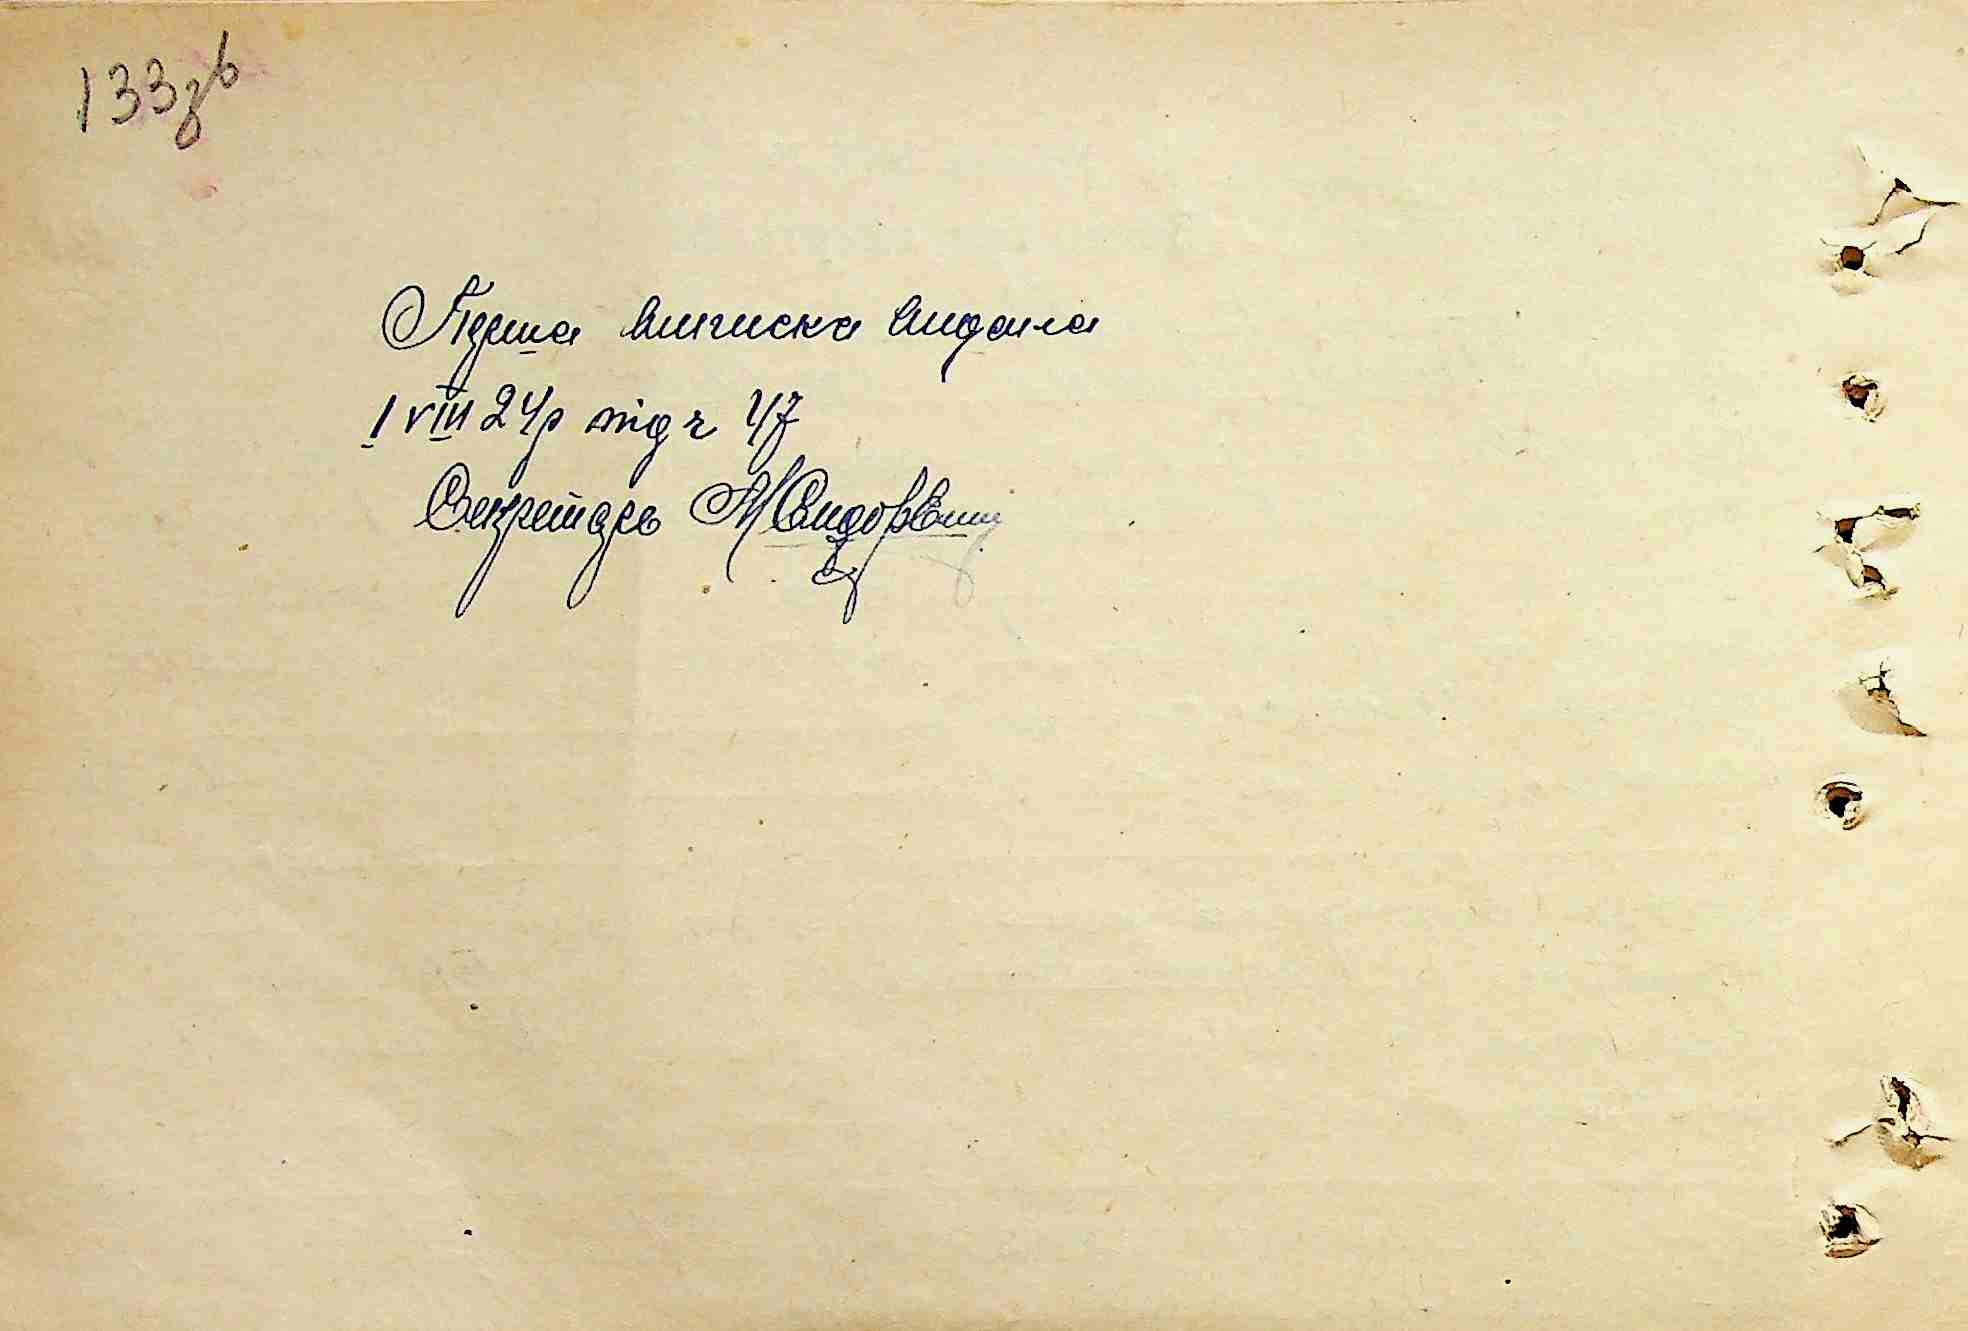 133зв
Перша виписка видана
1 VIII 24р під ч 47
Секретарь М Сидорвин